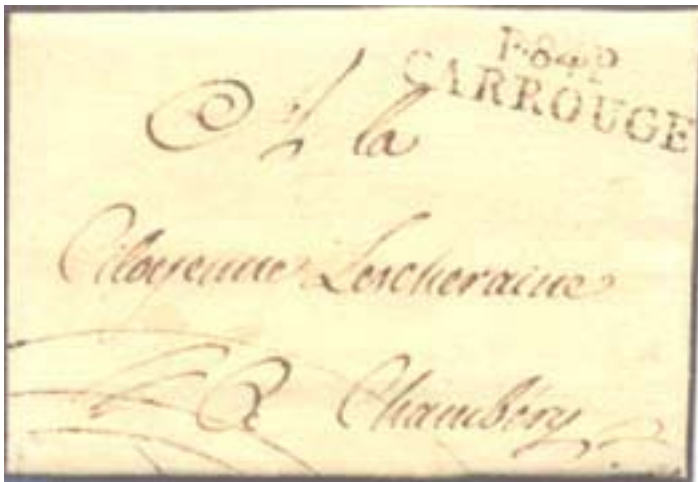 P.84.P
CARROUGE
A la
Citoyenne Lescheraine
A Chambéry